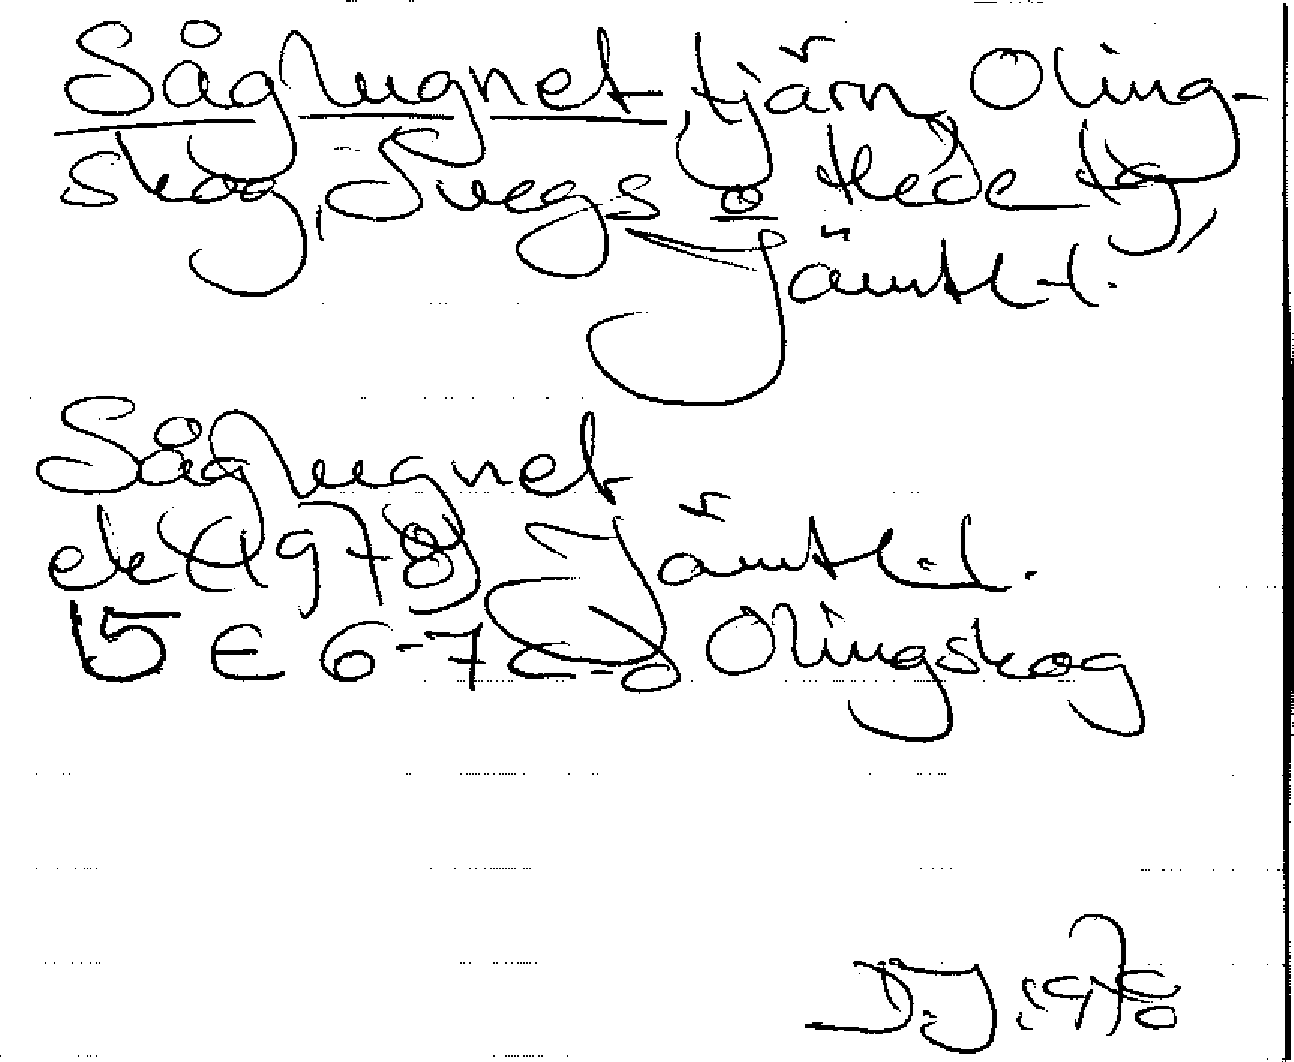 Såglugnet tjärn, Oling-
skog, Svegs o Hede tg,
Jämtl. l.
Såglugnet
ek (1978) Jämtl. l.
15 E 6-7 c-d Olingskog
D.J. 1978